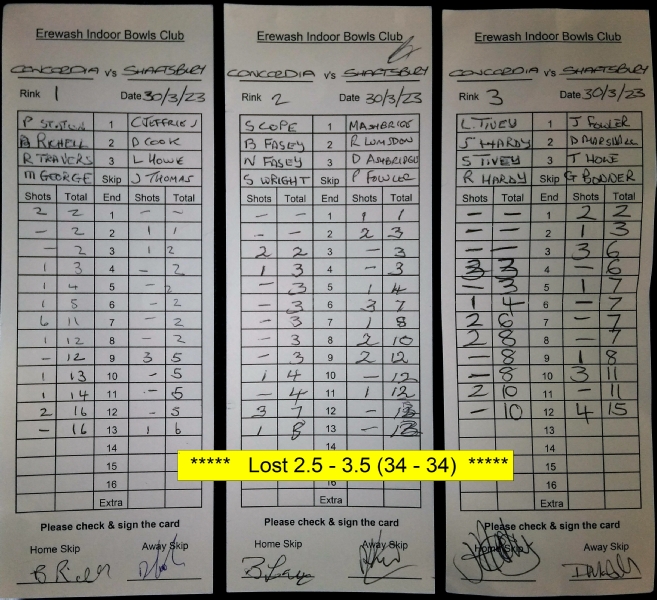 Erewash Indoor Bowls Club
CONCORDIA vs SHAFTSBURY
Rink 1 Date 30/3/23
P 1 C JEFFRIES
RICHELL 2 D COOK
R TRAVERS 3 L HOWE
M GEORGE Skip J THOMAS
Shots Total End Shots Total
2 2 1 - -
- 2 2 1 1
- 2 3 1 2
1 3 4 - 2
1 4 5 - 2
1 5 6 - 2
6 11 7 - 2
1 12 8 - 2
- 12 9 3 5
1 13 10 - 5
1 14 11 - 5
2 16 12 - 5
- 16 13 1 6
14
15
16
Extra
Please check & sign the card
Home Skip Away Skip
Erewash Indoor Bowls Club
CONCORDIA vs SHAFTSBURY
Rink 2 Date 30/3/23
S COPE 1
B FASEY 2 R LUMSDON
N FASEY 3 D
S WRIGHT Skip P FOWLER
Shots Total End Shots Total
- - 1 1 1
- - 2 2 3
2 2 3 - 3
1 3 4 - 3
- 3 5 1 4
- 3 6 3 7
- 3 7 1 8
- 3 8 2 10
- 3 9 2 12
1 4 10 - 12
- 4 11 1 12
3 7 12 - 13
1 8 13 - 13
14
16
Extra
Please check & sign the card
Home Skip Away Skip
Erewash Indoor Bowls Club
CONCORDIA vs SHAFTSBURY
Rink 3 Date 30/3/23
L. TIVEY 1 J FOWLER
J HARDY 2 D
S TIVEY 3 T HOWE
R HARDY Skip G BODDER
Shots Total End Shots Total
- - 1 2 2
- - 2 1 3
- - 3 3 6
3 3 4 - 6
- 3 5 1 7
1 4 6 - 7
2 6 7 - 7
2 8 8 - 7
- 8 9 1 8
- 8 10 3 11
2 10 11 - 11
- 10 12 4 15
13
14
15
16
Extra
Please check & sign the card
Home Skip Away Skip
***** Lost 2.5 - 3.5 (34 - 34) *****